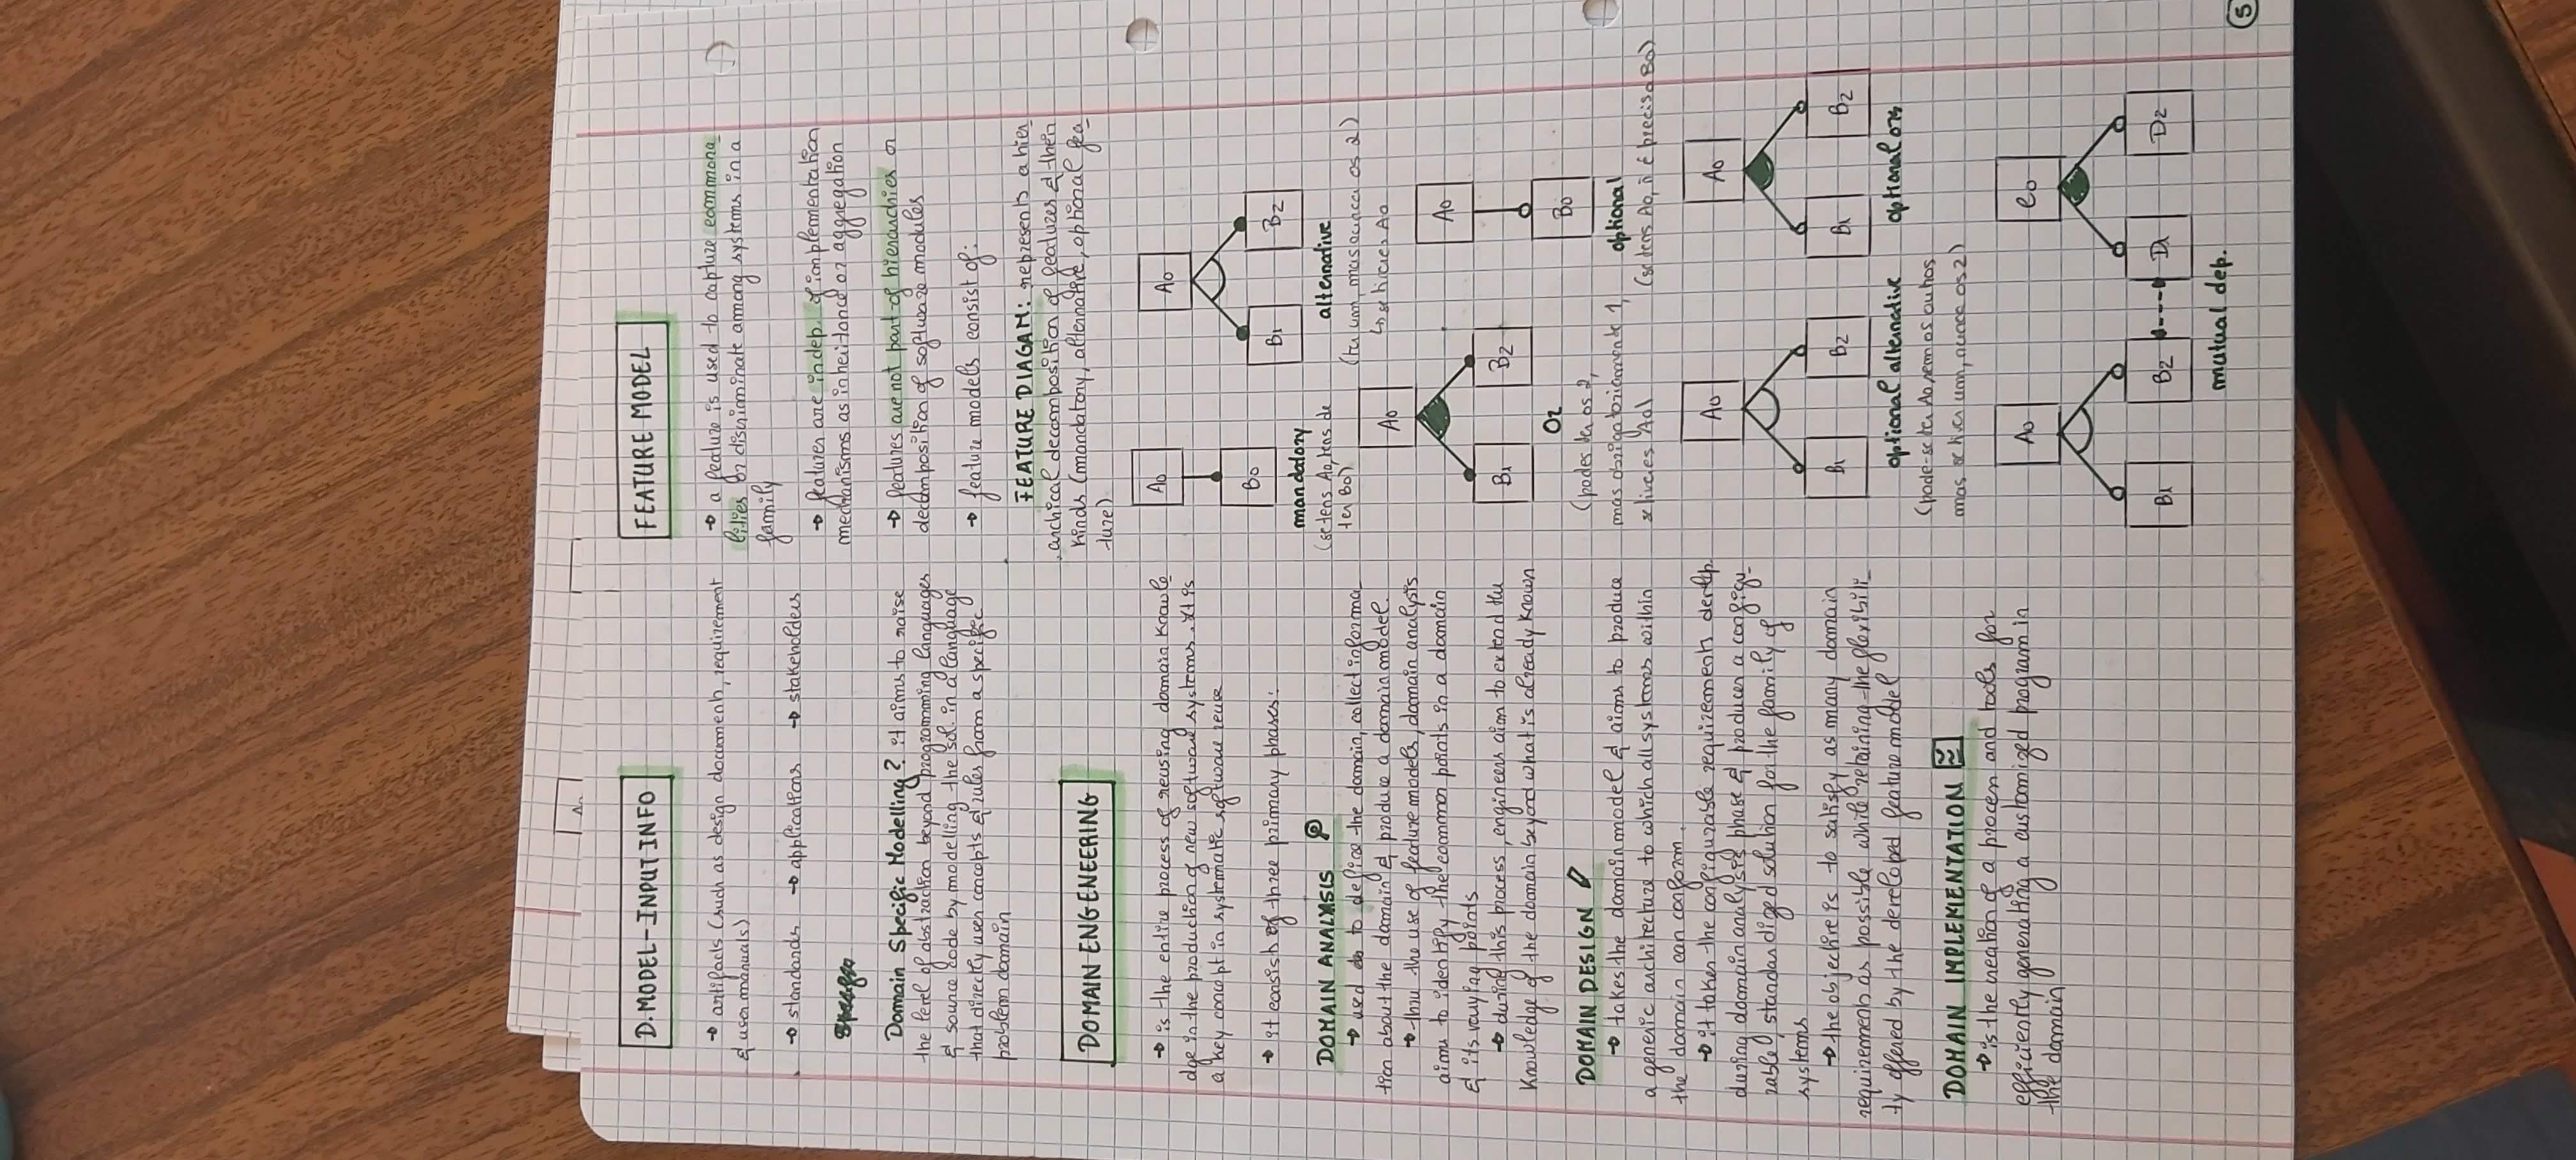 D.MODEL-INPUT INFO
→ artifacts (such as design documents, requirement
& user manuals)
→ standards → applications → stakeholders
Domain Specific Modelling? it aims to raise
the level of abstraction beyond programming languages
& source code by modelling the sol. in a language
that directly uses concepts & rules from a specific
problem domain
DOMAIN ENGENEERING
→ is the entire process of reusing domain knowle-
dge in the production of new software systems. It is
a key concept in systematic software reuse
→ it consists of three primary phases:
DOMAIN ANALYSIS
→ used to define the domain, collect informa-
tion about the domain & produce a domain model.
→ thru the use of feature models, domain analysis
aims to identify the common points in a domain
& its varying points
→ during this process, engineers aim to extend the
knowledge of the domain beyond what is already known
DOMAIN DESIGN
→ takes the domain model & aims to produce
a generic architecture to which all systems within
the domain can conform.
→ it takes the configurable requirements develop.
during domain analysis phase & produces a configu-
rable, standardized solution for the family of
systems
→ the objective is to satisfy as many domain
requirements as possible while retaining the flexibili-
ty offered by the developed feature model
DOMAIN IMPLEMENTATION
→ is the creation of a process and tools for
efficiently generating a customized program in
the domain
FEATURE MODEL
→ a feature is used to capture commona-
lities or discriminate among systems in a
family
→ features are indep. of implementation
mechanisms as inheritance or aggregation
→ features are not part-of hierarchies or
decomposition of software modules
→ feature models consist of:
FEATURE DIAGAM: represents a hier-
archical decomposition of features & their
kinds (mandatory, alternative, optional fea-
ture)
A0 A0
B0 B1 B2
mandatory alternative
(se tens A0, tens de
ter B0)
(tu um, mas nunca os 2)
↳ se tiveres A0
A0 A0
B1 B2 B0
Or optional
(podes ter os 2,
mas obrigatoriamente 1,
se tiveres A0)
(se tens A0, ñ é preciso B0)
A0 A0
B1 B2 B1 B2
optional alternative optional ors
(pode-se ter A0 sem os outros
mas se tiver um, nunca os 2)
A0 C0
B1 B2 D1 D2
mutual dep.
5